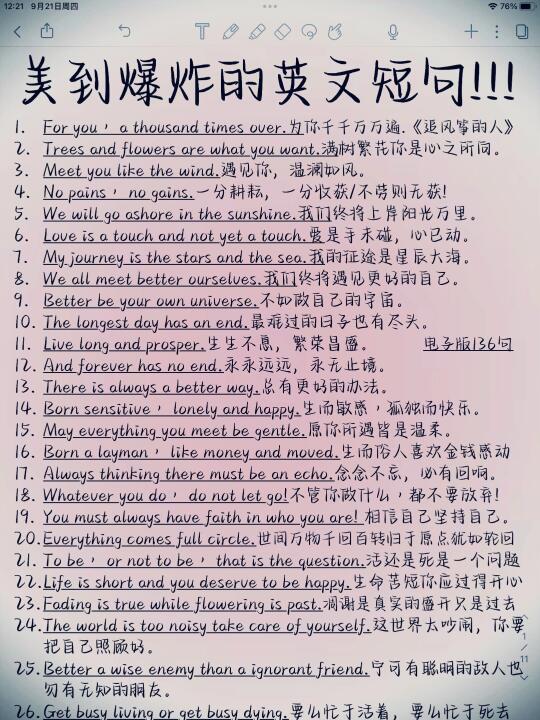 12:21 9月21日周四
76%
美到爆炸的英文短句!!!
1. For you, a thousand times over.为你千千万万遍.《追风筝的人》
2. Trees and flowers are what you want.满树繁花你是心之所向。
3. Meet you like the wind.遇见你，温澜如风。
4. No pains, no gains.一分耕耘，一分收获/不劳则无获!
5. We will go ashore in the sunshine.我们终将上岸阳光万里。
6. Love is a touch and not yet a touch.爱是手未碰，心已动。
7. My journey is the stars and the sea.我的征途是星辰大海。
8. We all meet better ourselves.我们终将遇见更好的自己。
9. Better be your own universe.不如做自己的宇宙。
10. The longest day has an end.最难过的日子也有尽头。
11. Live long and prosper.生生不息，繁荣昌盛。 电子版136句
12. And forever has no end.永永远远，永无止境。
13. There is always a better way.总有更好的办法。
14. Born sensitive, lonely and happy.生而敏感，孤独而快乐。
15. May everything you meet be gentle.愿你所遇皆是温柔。
16. Born a layman, like money and moved.生而俗人喜欢金钱感动
17. Always thinking there must be an echo.念念不忘，必有回响。
18. Whatever you do, do not let go!不管你做什么，都不要放弃!
19. You must always have faith in who you are! 相信自己坚持自己。
20. Everything comes full circle.世间万物千回百转归于原点犹如轮回
21. To be, or not to be, that is the question.活还是死是一个问题
22. Life is short and you deserve to be happy.生命苦短你应过得开心
23. Fading is true while flowering is past.凋谢是真实的盛开只是过去
24. The world is too noisy take care of yourself.这世界太吵闹，你要
把自己照顾好。
1/11
25. Better a wise enemy than a ignorant friend.宁可有聪明的敌人也
勿有无知的朋友。
26. Get busy living or get busy dying.要么忙于活着，要么忙于死去